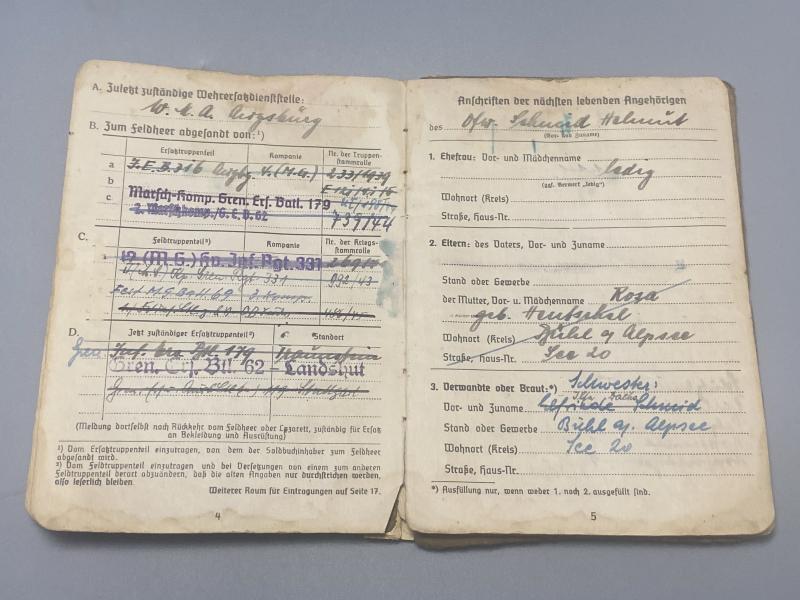 A. Zuletzt zuständige Wehrersatzdienststelle:
W. M. A. Augsburg
B. Zum Feldheer abgesandt von:¹)
Ersatztruppenteil Kompanie Nr. der Truppenstammrolle
a J.E.B. 316 4. (M.G.) 233/1939
b
c Marsch-Komp. Gren. Ers. Batl. 179
2. Marschkomp./G.E.B. 62 739/44
C.
Feldtruppenteil²) Kompanie Nr. der Kriegsstammrolle
12 (M.G.) Kp. Inf. Rgt. 331
331 932/43
3. Komp.
D. Jetzt zuständiger Ersatztruppenteil²) Standort
179 Traunstein
Gren. Ers. Btl. 62 – Landshut
(Meldung dortselbst nach Rückkehr vom Feldheer oder Lazarett, zuständig für Ersatz
an Bekleidung und Ausrüstung)
¹) Vom Ersatztruppenteil einzutragen, von dem der Soldbuchinhaber zum Feldheer
abgesandt wird.
²) Vom Feldtruppenteil einzutragen und bei Versetzungen von einem zum anderen
Feldtruppenteil derart abzuändern, daß die alten Angaben nur durchstrichen werden,
also leserlich bleiben.
Weiterer Raum für Eintragungen auf Seite 17.
4
Anschriften der nächsten lebenden Angehörigen
des Schmid Helmut
(Vor- und Zuname)
1. Ehefrau: Vor- und Mädchenname
ledig
(ggf. Vermerk „ledig“)
Wohnort (Kreis)
Straße, Haus-Nr.
2. Eltern: des Vaters, Vor- und Zuname
Stand oder Gewerbe
der Mutter, Vor- u. Mädchenname Rosa
geb. Hentschel
Wohnort (Kreis) Bühl a/ Alpsee
Straße, Haus-Nr. See 20
3. Verwandte oder Braut:*) Schwester:
Vor- und Zuname Elfriede Schmid
Stand oder Gewerbe Bühl a/ Alpsee
Wohnort (Kreis) See 20
Straße, Haus-Nr.
*) Ausfüllung nur, wenn weder 1. noch 2. ausgefüllt sind.
5